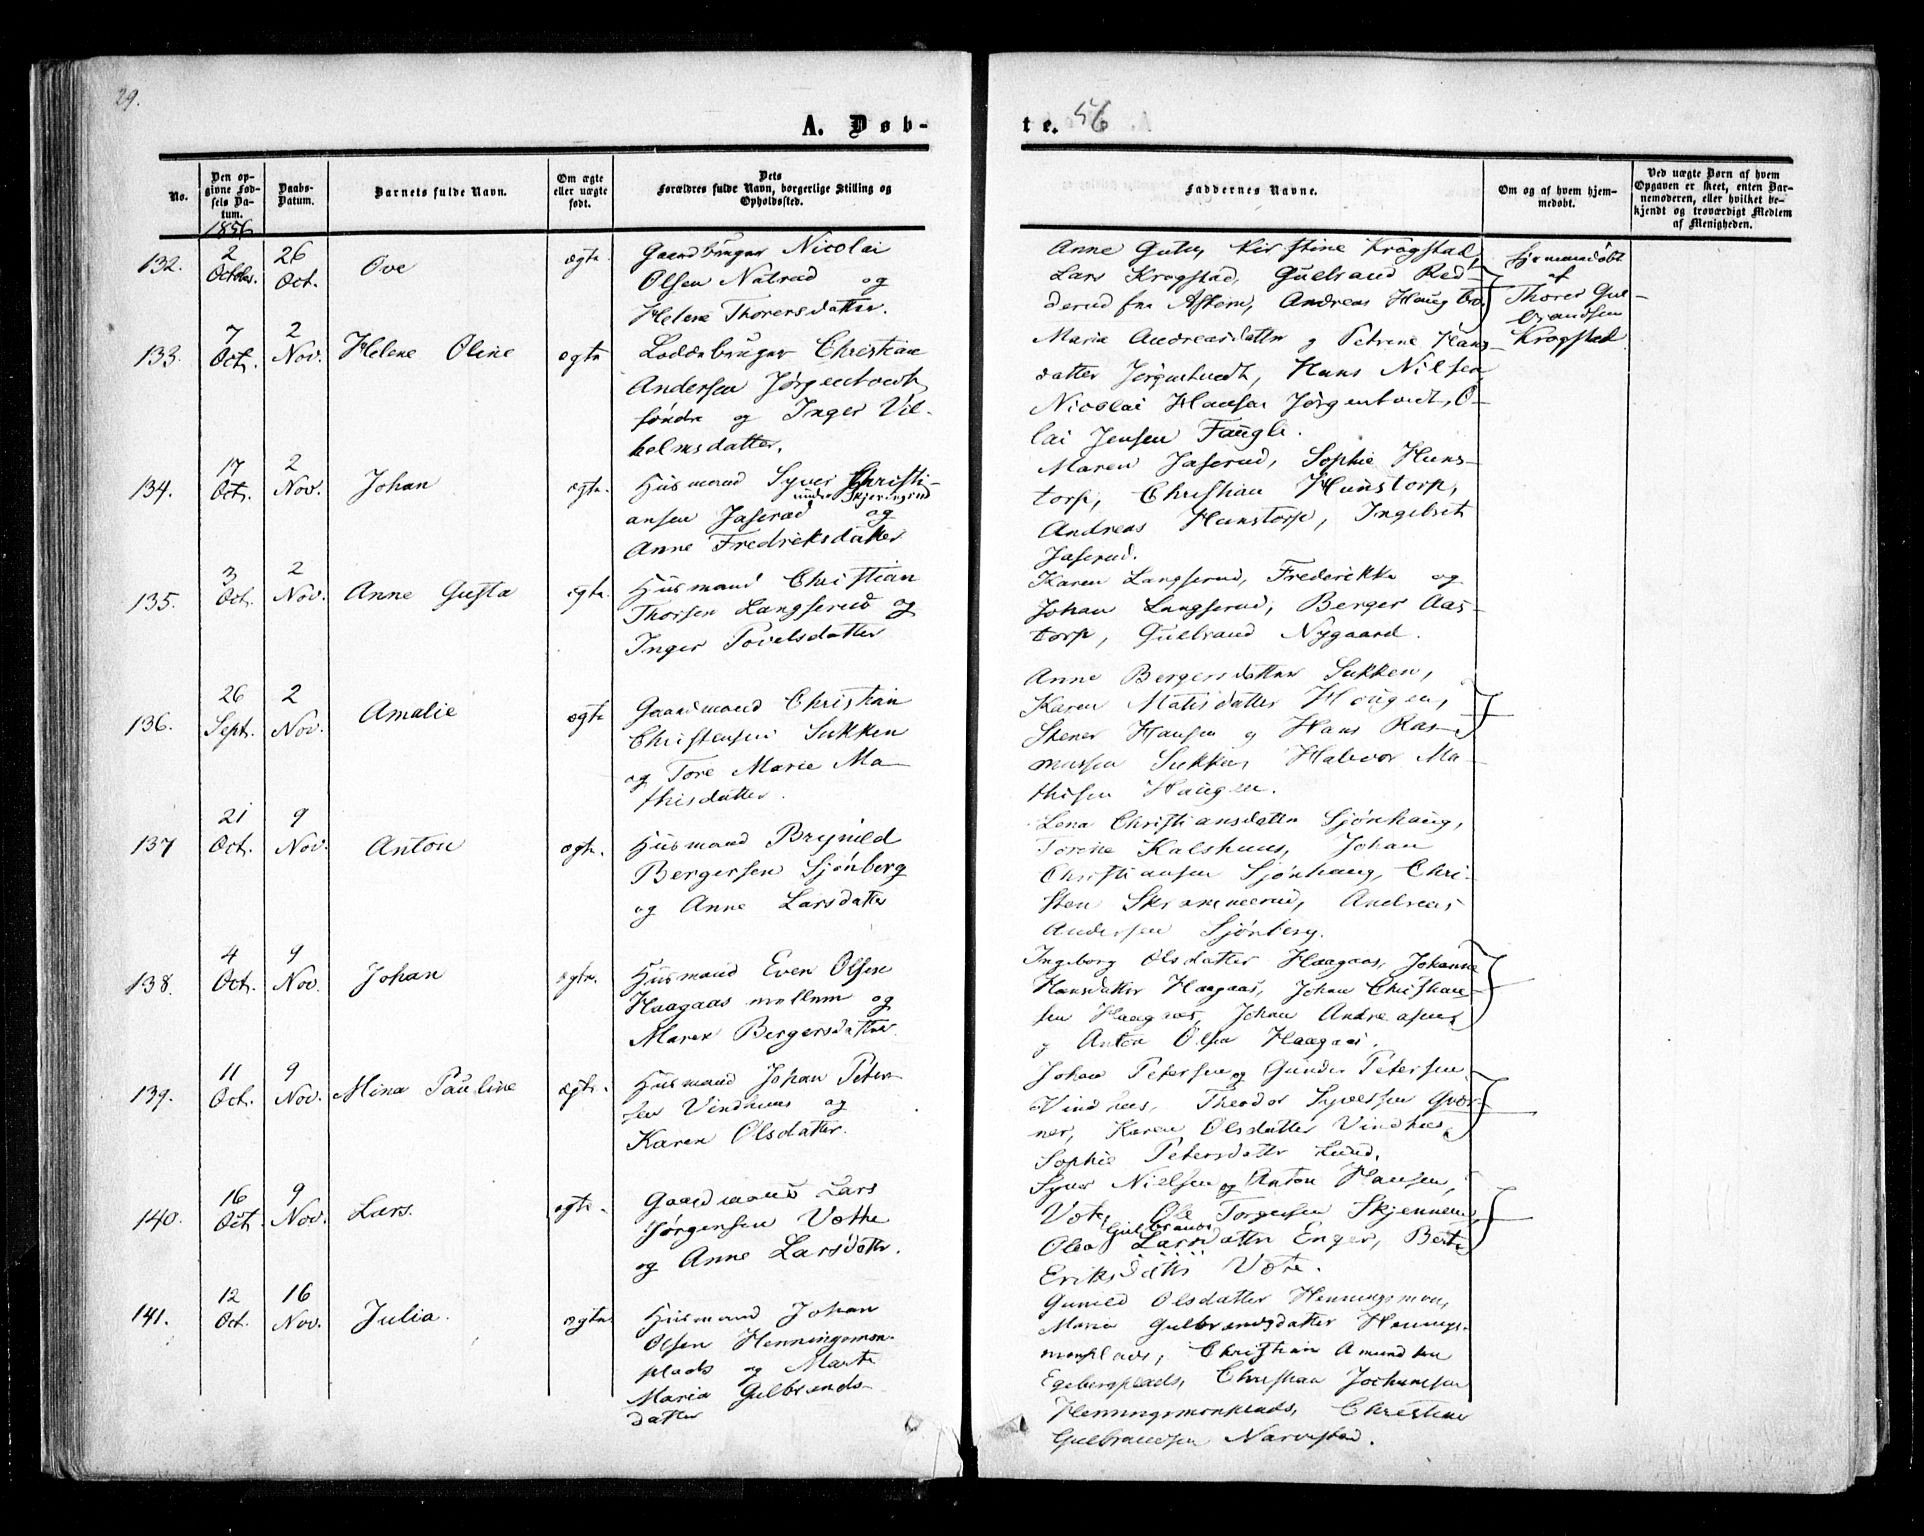 29.
A. Døb-
te. 56
No.
Den op-
givne Fød-
sels Da-
tum.
1856
Daabs-
Datum.
Barnets fulde Navn.
Om ægte
eller uægte
født.
Dets
Forældres fulde Navn, borgerlige Stilling og
Opholdssted.
Faddernes Navne.
Om og af hvem hjem-
medøbt.
Ved uægte Børn af hvem
Opgaven er skeet, enten Bar-
nemoderen, eller hvilket be-
kjendt og troværdigt Medlem
af Menigheden.
132.
2
October.
26
Oct.
Ove
ægte
Gaardbruger Nicolai
Olsen Nalrud og
Helene Thorersdatter.
Anne Kirstine Krogstad,
Lars Krogstad, Gulbrand Red-
derud fra Askim, Andreas Haugbro.
hjemmedøbt
af
Thorer Gul-
brandsen
Krogstad.
133.
7
Oct.
2
Nov.
Helene Oline
ægte
Loddebruger Christian
Andersen Jørgentvedt
søndre og Inger Vil-
helmsdatter.
Maria Andreasdatter og Petrine Hans-
datter Jørgentvedt, Hans Nilsen,
Nicolai Hansen Jørgentvedt, O-
lai Jensen Faugli.
134.
17
Oct.
2
Nov.
Johan
ægte
Husmand Syver Christi-
under Skjeringrud
ansen Jaserud og
Anne Fredriksdatter
Maren Jaserud, Sophie Huns-
torp, Christian Hunstorp,
Andreas Hunstorp, Ingebret
Jaserud.
135.
3
Oct.
2
Nov.
Anne Gusta
ægte
Husmand Christian
Thorsen Langserud og
Inger Povelsdatter
Karen Langserud, Frederikke og
Johan Langserud, Berger Aas-
torp, Gulbrand Nygaard.
136.
26
Sept.
2
Nov.
Amalie
ægte
Gaardmand Christian
Christensen Sukken
og Tore Marie Ma-
thisdatter.
Anne Bergersdatter Sukken,
Karen Matisdatter Haugen,
Stener Hansen og Hans Ras-
mussen Sukken, Halvor Ma-
thisen Haugen.
137
21
Oct.
9
Nov.
Anton
ægte
Husmand Brynild
Bergersen Sjönberg
og Anne Larsdatter
Lena Christiansdatter Sjönhaug,
Torine Kalshuus, Johan
Christiansen Sjönhaug, Chri-
sten Skrammerud, Andreas
Andersen Sjönberg.
138.
4
Oct.
9
Nov.
Johan
ægte
Husmand Even Olsen
Haagaas mellem og
Maren Bergersdatter
Ingeborg Olsdatter Haagaas, Johanne
Hansdatter Haagaas, Johan Christian-
sen Haagaas, Johan Andreasen
og Anton Olsen Haagaas.
139.
11
Oct.
9
Nov.
Mina Pauline
ægte
Husmand Johan Peter-
sen Vindhuus og
Karen Olsdatter.
Johan Petersen og Gunder Petersen
Vindhus, Theodor Syversen Qvær-
ner, Karen Olsdatter Vindhus,
Sophie Petersdatter Lund.
140.
16
Oct.
9
Nov.
Lars.
ægte
Gaardmand Lars
Jørgensen Vøthe
og Anne Larsdatter.
Syver Nielsen og Anton Hansen,
Vøte, Ole Torgersen Skjennem,
Gulbrands
Olea Larsdatter Enger, Berte
Eriksdatter Vøte.
141.
12
Oct.
16
Nov.
Julia.
ægte
Husmand Johan
Olsen Henningsmon-
plads og Marte
Maria Gulbrands-
datter
Gunild Olsdatter Henningsmon,
Maria Gulbrandsdatter Hennings-
monplads, Christian Amundsen
Egebergplads, Christian Jochumsen
Henningsmonplads, Christian
Gulbrandsen Narvestad.